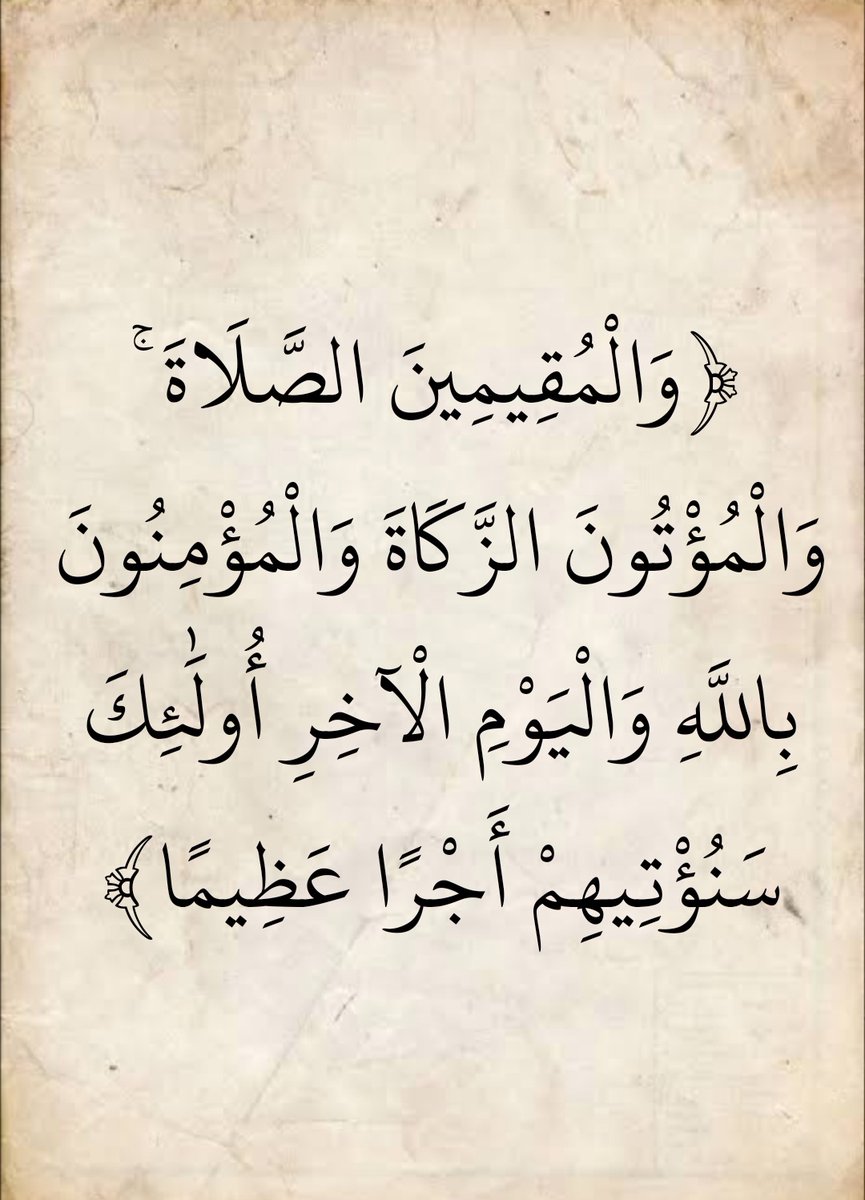 ﴿وَالْمُقِيمِينَ الصَّلَاةَ ۚ
وَالْمُؤْتُونَ الزَّكَاةَ وَالْمُؤْمِنُونَ
بِاللَّهِ وَالْيَوْمِ الْآخِرِ أُولَٰئِكَ
سَنُؤْتِيهِمْ أَجْرًا عَظِيمًا﴾